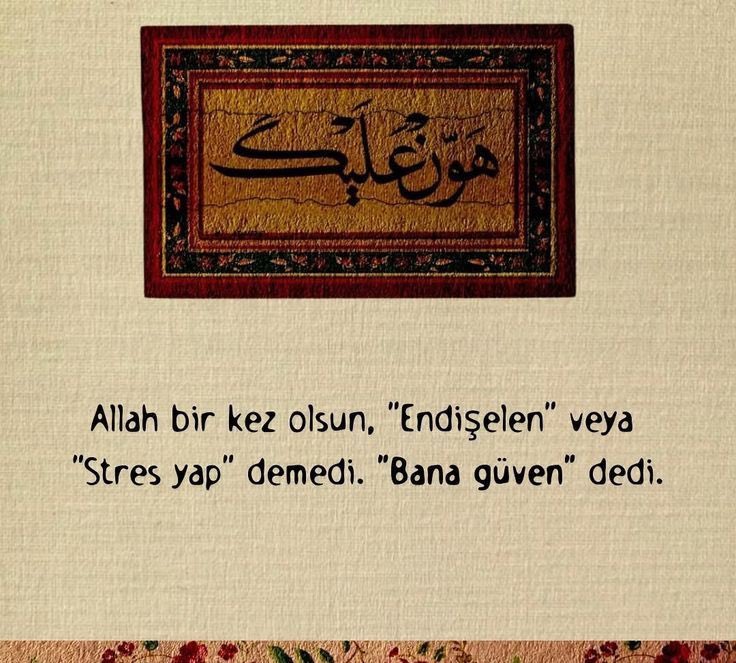 هَوِّنْ عَلَيْكَ
Allah bir kez olsun, "Endişelen" veya
"Stres yap" demedi. "Bana güven" dedi.